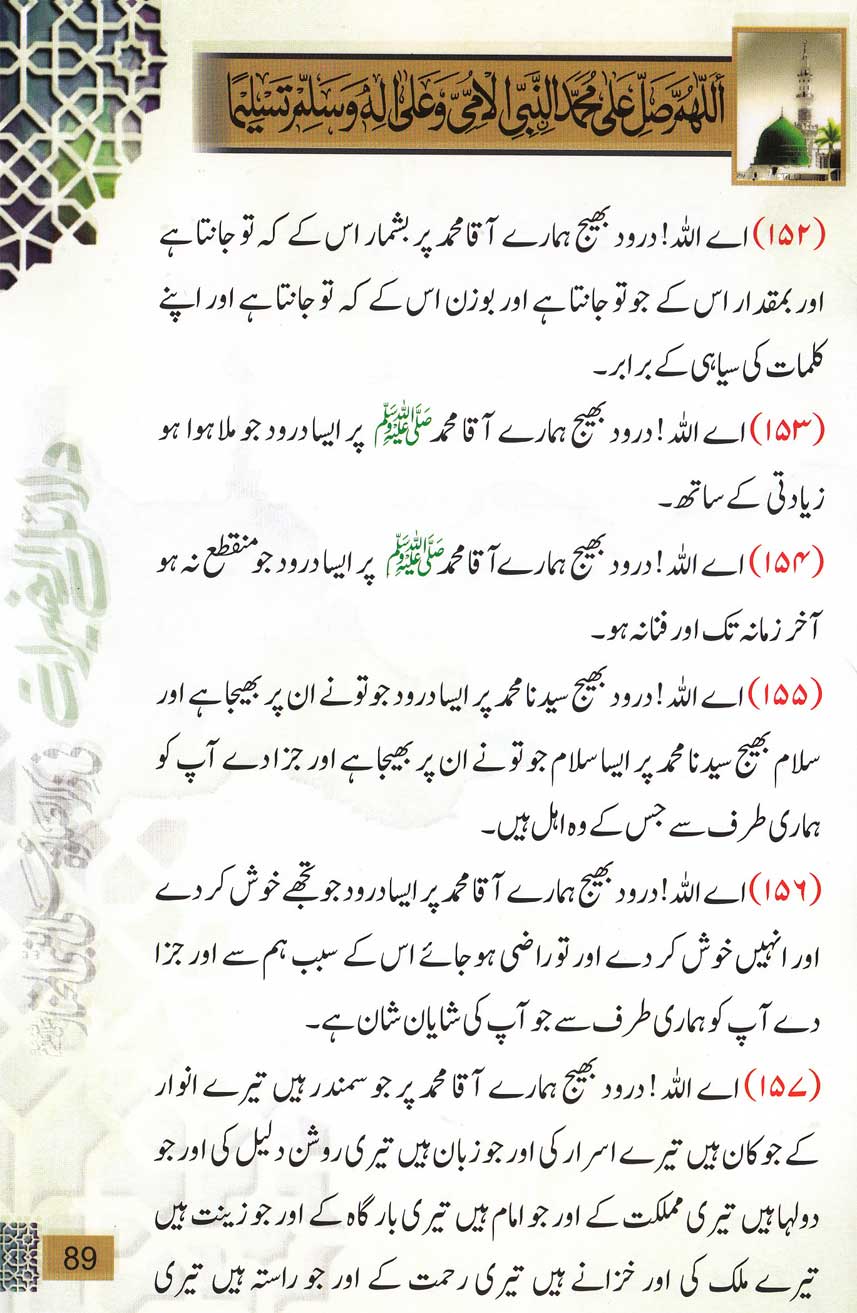 اَللّٰهُمَّ صَلِّ عَلٰى مُحَمَّدِ النَّبِيِّ الْاُمِّيِّ وَعَلٰى اٰلِهٖ وَسَلِّمْ تَسْلِيْمًا
(۱۵۲) اے اللہ! درود بھیج ہمارے آقا محمد پر بشمار اس کے کہ تو جانتا ہے
اور بمقدار اس کے جو تو جانتا ہے اور بوزن اس کے کہ تو جانتا ہے اور اپنے
کلمات کی سیاہی کے برابر۔
(۱۵۳) اے اللہ! درود بھیج ہمارے آقا محمد ﷺ پر ایسا درود جو ملا ہوا ہو
زیادتی کے ساتھ۔
(۱۵۴) اے اللہ! درود بھیج ہمارے آقا محمد ﷺ پر ایسا درود جو منقطع نہ ہو
آخر زمانہ تک اور فنا نہ ہو۔
(۱۵۵) اے اللہ! درود بھیج سیدنا محمد پر ایسا درود جو تو نے ان پر بھیجا ہے اور
سلام بھیج سیدنا محمد پر ایسا سلام جو تو نے ان پر بھیجا ہے اور جزا دے آپ کو
ہماری طرف سے جس کے وہ اہل ہیں۔
(۱۵۶) اے اللہ! درود بھیج ہمارے آقا محمد پر ایسا درود جو تجھے خوش کر دے
اور انہیں خوش کر دے اور تو راضی ہو جائے اس کے سبب ہم سے اور جزا
دے آپ کو ہماری طرف سے جو آپ کی شایان شان ہے۔
(۱۵۷) اے اللہ! درود بھیج ہمارے آقا محمد پر جو سمندر ہیں تیرے انوار
کے جو کان ہیں تیرے اسرار کی اور جو زبان ہیں تیری روشن دلیل کی اور جو
دولہا ہیں تیری مملکت کے اور جو امام ہیں تیری بارگاہ کے اور جو زینت ہیں
تیرے ملک کی اور خزانے ہیں تیری رحمت کے اور جو راستہ ہیں تیری
دلائل الخیرات
89